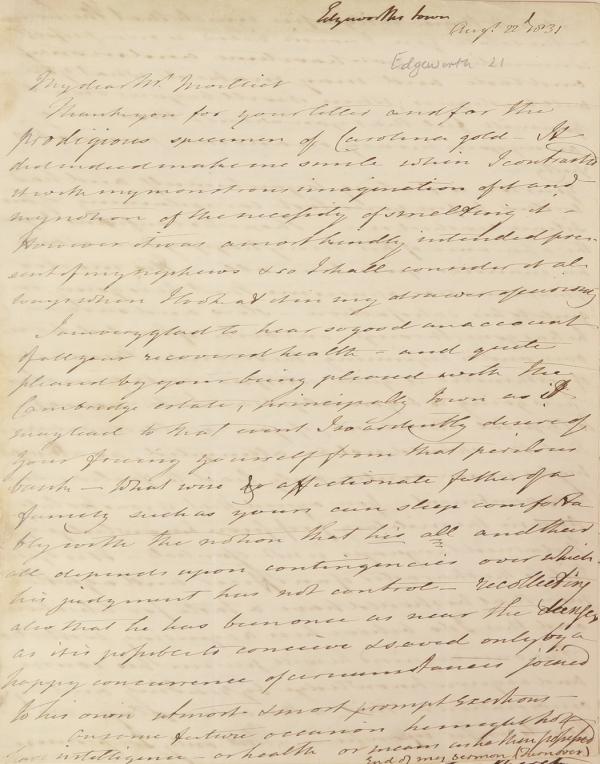 Edgeworths town
Augt. 22d 1831
Edgeworth 21
My dear Mr. Moilliet
Thank you for your letter and for the
prodigious specimen of Carolina gold – It
did indeed make me smile when I contrasted
it with my monstrous imagination of it and
my notion of the necessity of smelting it –
However it was a most kindly intended pre-
sent of my nephews & so I shall consider it al-
ways when I look at it in my drawer of curiosity
I am very glad to hear so good an account
of all your recovered health – and quite
pleased by your being pleased with the
Cambridge estate, principally town as it
may lead to that event I so ardently desire of
your freeing yourself from that perilous
bank – What wise & affectionate father of a
family such as yours can sleep comforta
bly with the notion that his all and their
all depends upon contingencies over which
his judgment has not control – recollecting
also that he has been once as near the danger
as it is possible to conceive & saved only by a
happy concurrence of circumstances joined
to his own utmost & most prompt exertions
on some future occasion he might not
have intelligence – or health or means as he then possessed
End of my sermon (Turn over)